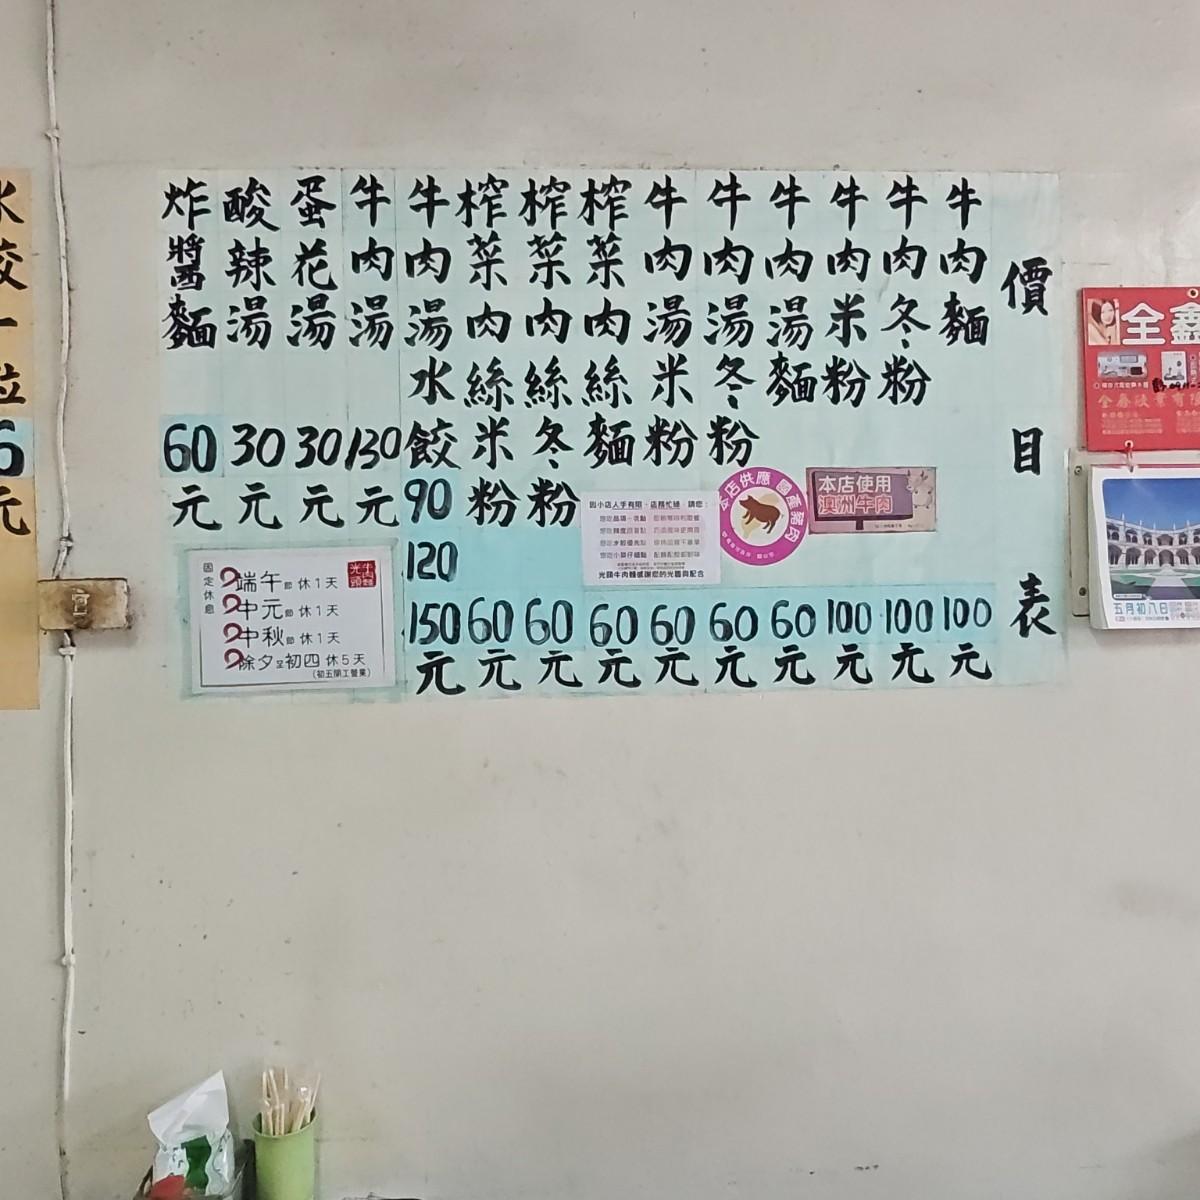 價目表
牛肉麵 100元
牛肉冬粉 100元
牛肉米粉 100元
牛肉湯麵 60元
牛肉湯冬粉 60元
牛肉湯米粉 60元
榨菜肉絲麵 60元
榨菜肉絲冬粉 60元
榨菜肉絲米粉 60元
牛肉湯水餃 90 120 150元
牛肉湯 130元
蛋花湯 30元
酸辣湯 30元
炸醬麵 60元
本店使用
澳洲牛肉
本店供應 國產豬肉
因小店人手有限、店務忙碌 請您：
光頭牛肉麵感謝您的光臨與配合
固定休息
端午節 休1天
中元節 休1天
中秋節 休1天
除夕至初四 休5天
(初五開工營業)
光頭牛肉麵
水餃一粒
6元
全鑫
五月初八日